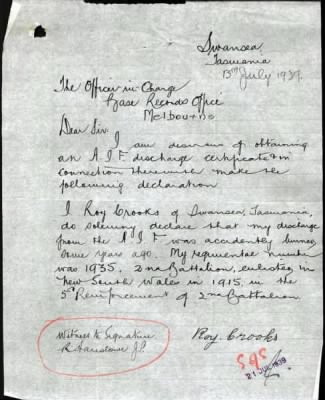 Swansea
Tasmania
13th July 1939.
The Officer-in-Charge
Base Records Office
Melbourne
Dear Sir.
I am desirous of obtaining
an A.I.F. discharge certificate & in
connection therewith make the
following declaration
I Roy Crooks of Swansea, Tasmania,
do solemnly declare that my discharge
from the A.I.F. was accidently burned
some years ago. My regimental number
was 1935, 2nd Battalion, enlisted in
New South Wales in 1915, in the
5th Reinforcement of 2nd Battalion.
Witness to Signature
J.P.
Roy. Crooks
21 JUL 1939